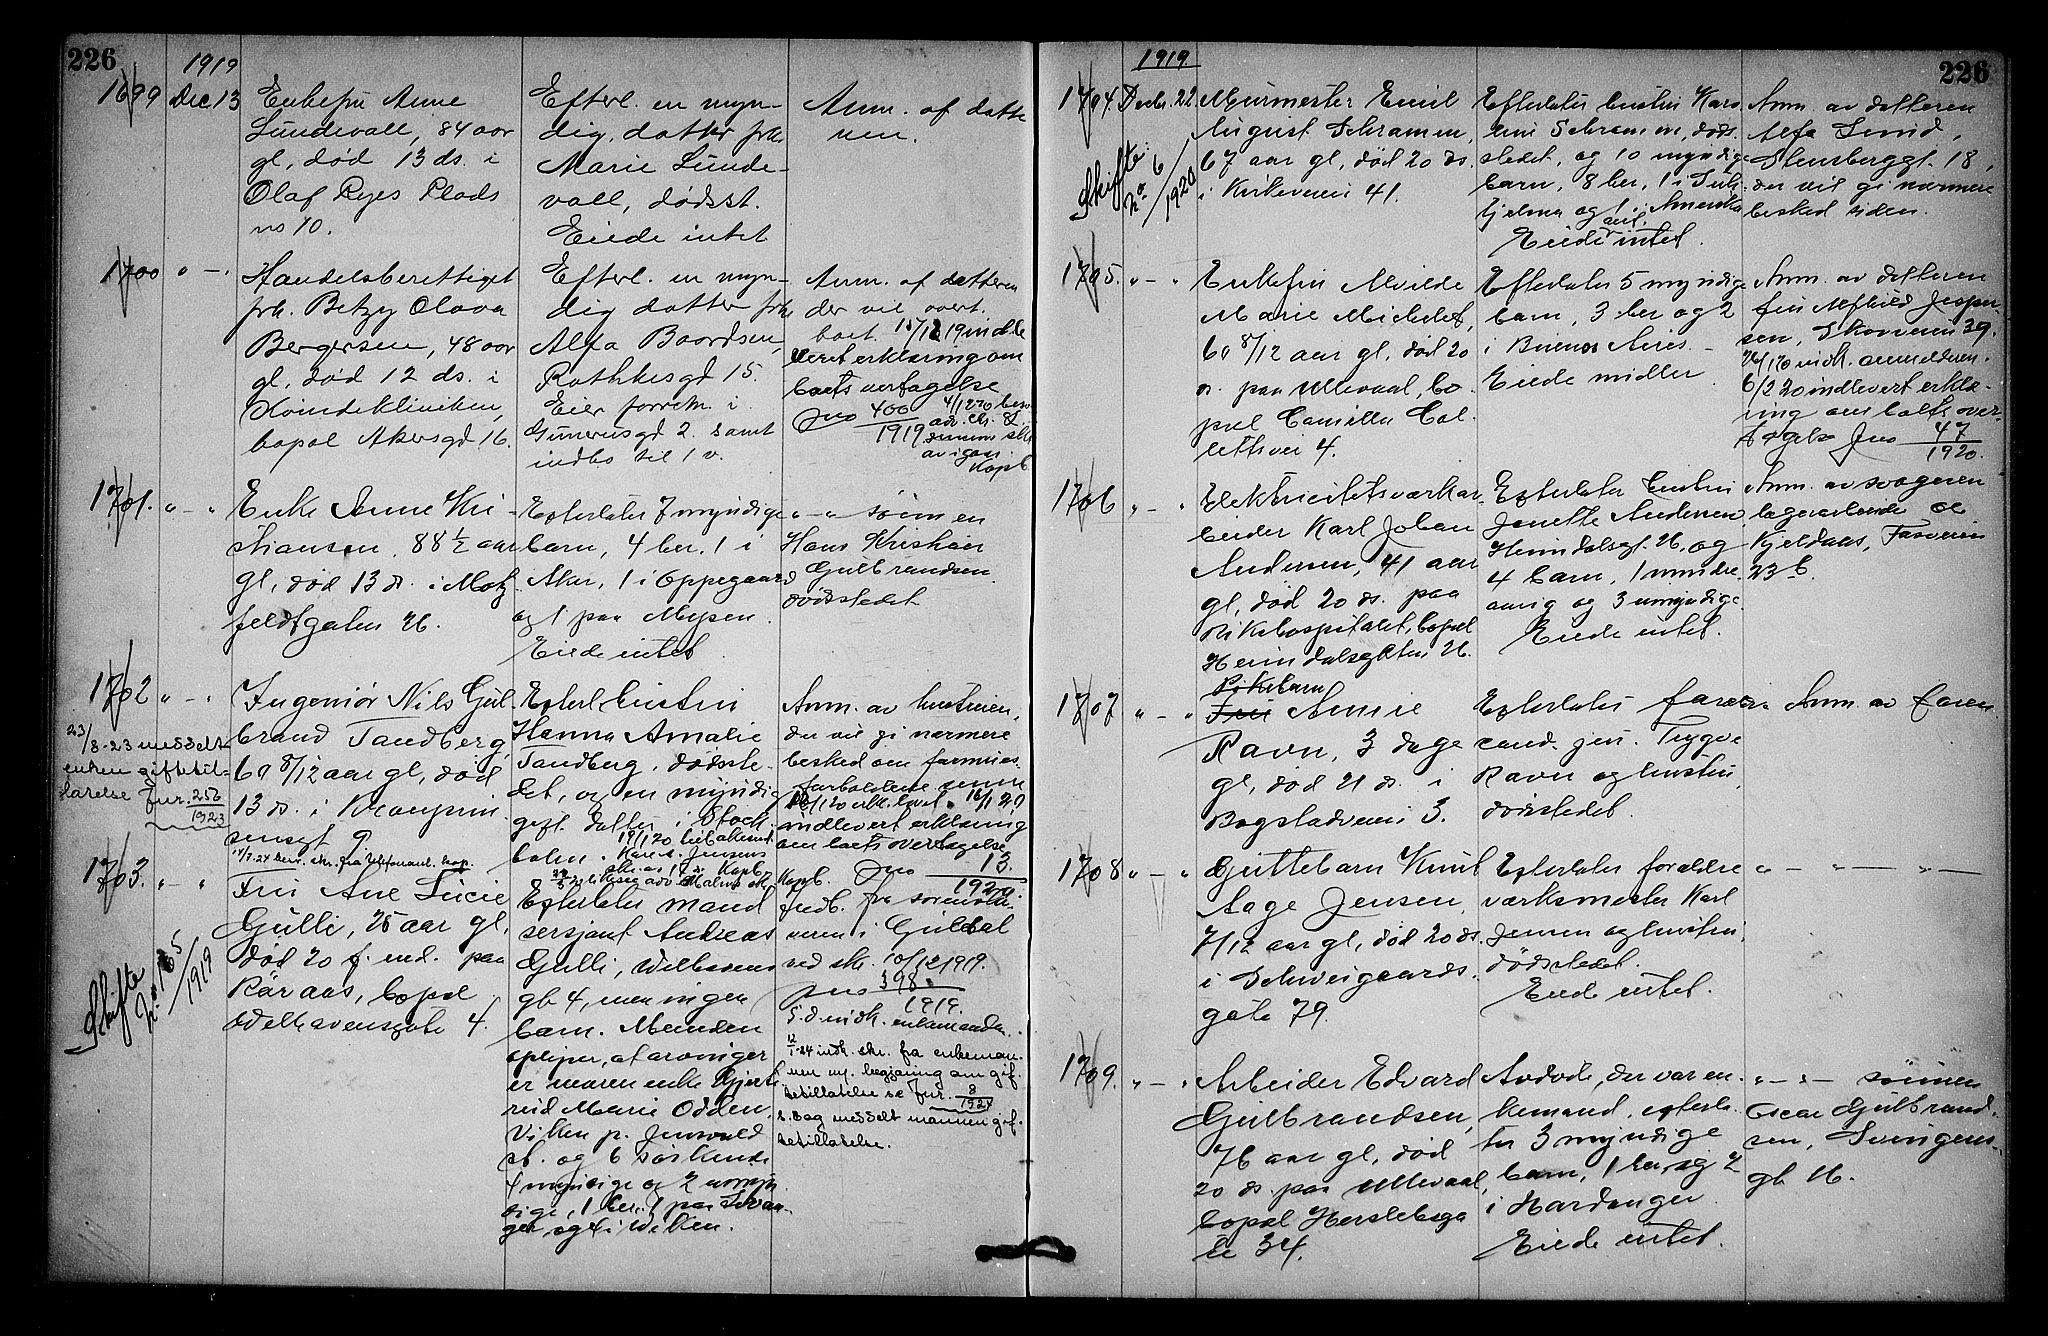 226
1919
1699 Dec 13
Enkefru Anne
Lundevall, 84 aar
gl, død 13 ds. i
Olaf Ryes Plads
no 10.
Efterl. en myn-
dig datter frk.
Marie Lunde-
vall, dødsst.
Eiede intet
Anm. af datte
ren.
1700 " — "
Handelsberettiget
frk. Betzy Olava
Bergersen, 48 aar
gl, død 12 ds. i
Kvindekliniken,
bopæl Akersgd 16.
Efterl. en myn-
dig datter frk.
Alfa Baardsen,
Rathkesgd 15.
Eier forretn. i
Gunerusgd 2. samt
indbo til 1 v.
Anm. af datteren
der vil overt.
boet. 15/12 19 indle
veret erklæring om
boets overtagelse
Jno 400
1919
1701. " — "
Enke Anne Kri-
stiansen, 88 1/2 aar
gl, død 13 ds. i Motz
feldtgaten 26.
Efterlater 7 myndige
barn, 4 her. 1 i
Aker, 1 i Oppegaard
og 1 paa Mysen.
Eiede intet.
" — " sønnen
Hans Kristian
Gulbrandsen
dødsstedet
1702 " — "
23/8-23 meddelt
enken giftetil-
latelse Jnr. 256
1923
Ingeniør Nils Gul
brand Tandberg,
60 8/12 aar gl, død
13 ds. i Kronprin
sensgt 9.
Efterl hustru
Hanna Amalie
Tandberg, dødsste-
det, og en myndig
gift datter i Stock
holm.
Anm. av hustruen,
der vil gi nærmere
besked om formues
forholdene senere
indlevert erklæring
om boets overtagelse
Jno 13.
1920
1703. " — "
Skifte
No 165
/1919
Fru Ane Lucie
Gulli, 25 aar gl,
død 20 f. md. paa
Røraas, bopæl
Welhavensgate 4.
Efterlater mand
sersjant Andreas
Gulli, Welhavens
gt 4, men ingen
barn. Manden
oplyser, at arvinger
er moren enke Gjert
rud Marie Odden,
Viken p.
st. og 6 søskende
4 myndige og 2 umyn
dige, 1 her. 1 paa
og 4 i Wiken.
Indb. fra sorenskri
veren i Guldal
ved skr. 10/12 1919.
Jno 398.
1919.
S. d. indk. enkemanden.
12/1-24 indk. skr. fra enkeman-
nen m. begjæring om gif-
tetillatelse se Jnr. 8
1924
S. dag meddelt mannen gif-
tetillatelse.
1919.
226
1704. Decbr. 22.
Skifte
No 6
/1920
Murmester Emil
August Schramm,
67 aar gl, død 20 ds.
i Kirkeveien 41.
Efterlater hustru Karo
line Schramm, døds
stedet, og 10 myndige
barn, 8 her, 1 i Svk.
Hjelma og 1 i Amerika
Eiede intet.
Anm. av datteren
Alfa Smid,
Stensberggt. 18,
der vil gi nærmere
besked siden.
1705. " — "
Enkefru Alvilde
Marie Michelet,
60 8/12 aar gl, død 20
ds. paa Ullevaal, bo
pæl Camilla Col
lettsvei 4.
Efterlater 5 myndige
barn, 3 her og 2
i Buenos Aires. —
Eiede midler
Anm. av datteren
fru Alfhild Jesper
sen, Skovveien 39.
26/1 20 indk. anmelderen.
6/2 20 indlevert erklæ-
ring om boets over-
tagelse Jno 47
1920.
1706 " — "
Elektricitetsverkar
beider Karl Johan
Andersen, 41 aar
gl, død 20 ds. paa
Rikshospitalet, bopæl
Heimdalsgaten 26.
Efterlater hustru
Jonette Andersen,
Heimdalsgt. 26, og
4 barn, 1 mindre
aarig og 3 umyndige.
Eiede intet.
Anm. av svogeren
lagerarbeide Ole
Kjeldaas, Fossveien
23 b.
1707 " — "
Pikebarn
Fru Annie
Ravn, 3 dage
gl, død 21 ds. i
Bogstadveien 3.
Efterlater faren
cand. jur. Trygve
Ravn og hustru,
dødsstedet.
Anm. av faren.
1708 " — "
Guttebarn Knut
Aage Jensen,
7/12 aar gl, død 20 ds.
i Schweigaards
gate 79.
Efterlater forældre
værksmester Karl
Jensen og hustru,
dødsstedet.
Eiede intet.
" — " — " —
1709. " — "
Arbeider Edvard
Gulbrandsen,
76 aar gl, død
20 ds. paa Ullevaal,
bopæl Herslebsga
te 34.
Avdøde, der var en-
kemand, efterla-
ter 3 myndige
barn, 1 her, og 2
i Hardanger.
Eiede intet.
" — " — sønnen
Oscar Gulbrand-
sen, Svingens
gt 16.